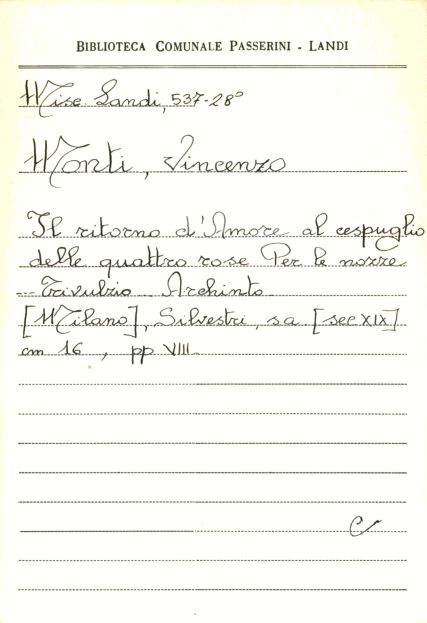 BIBLIOTECA COMUNALE PASSERINI - LANDI
Misc. Landi, 537-28°
Monti, Vincenzo
Il ritorno d'Amore al cespuglio
delle quattro rose Per le nozze
--- Trivulzio Archinto
[Milano], Silvestri, s.a. [sec XIX]
cm 16, pp VIII